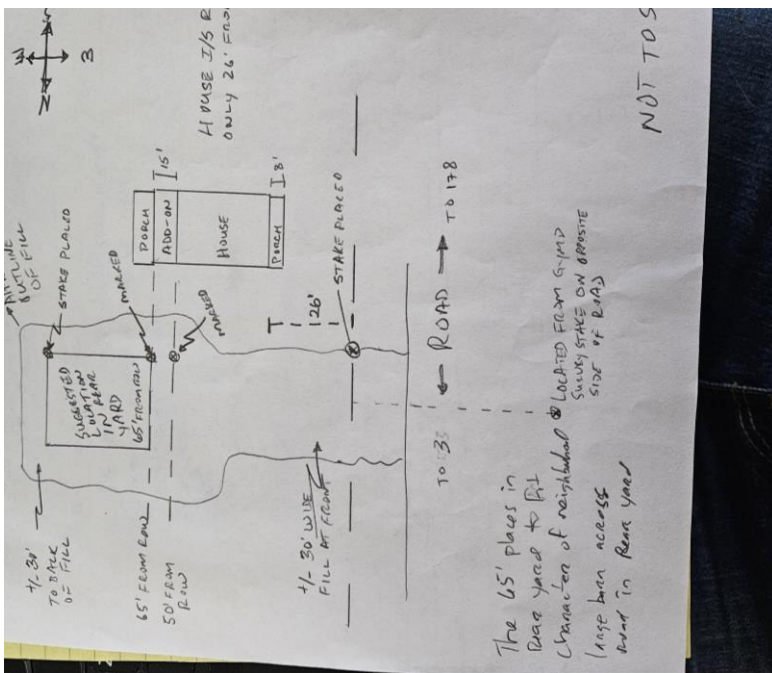 OUTLINE
OF FILL
+/- 30'
TO BACK
OF FILL
STAKE PLACED
SUGGESTED
LOCATION
IN REAR
YARD
65' FROM ROW
MARKED
MARKED
65' FROM ROW
50' FROM
ROW
PORCH
ADD-ON
15'
HOUSE
PORCH
8'
HOUSE I/S R
ONLY 26' FROM
26'
STAKE PLACED
+/- 30' WIDE
FILL AT FRONT
TO
ROAD
TO 178
LOCATED FROM
SURVEY STAKE ON OPPOSITE
SIDE OF ROAD
The 65' places in
Rear yard to fit
Character of neighborhood
large barn across
road in Rear yard
NOT TO S